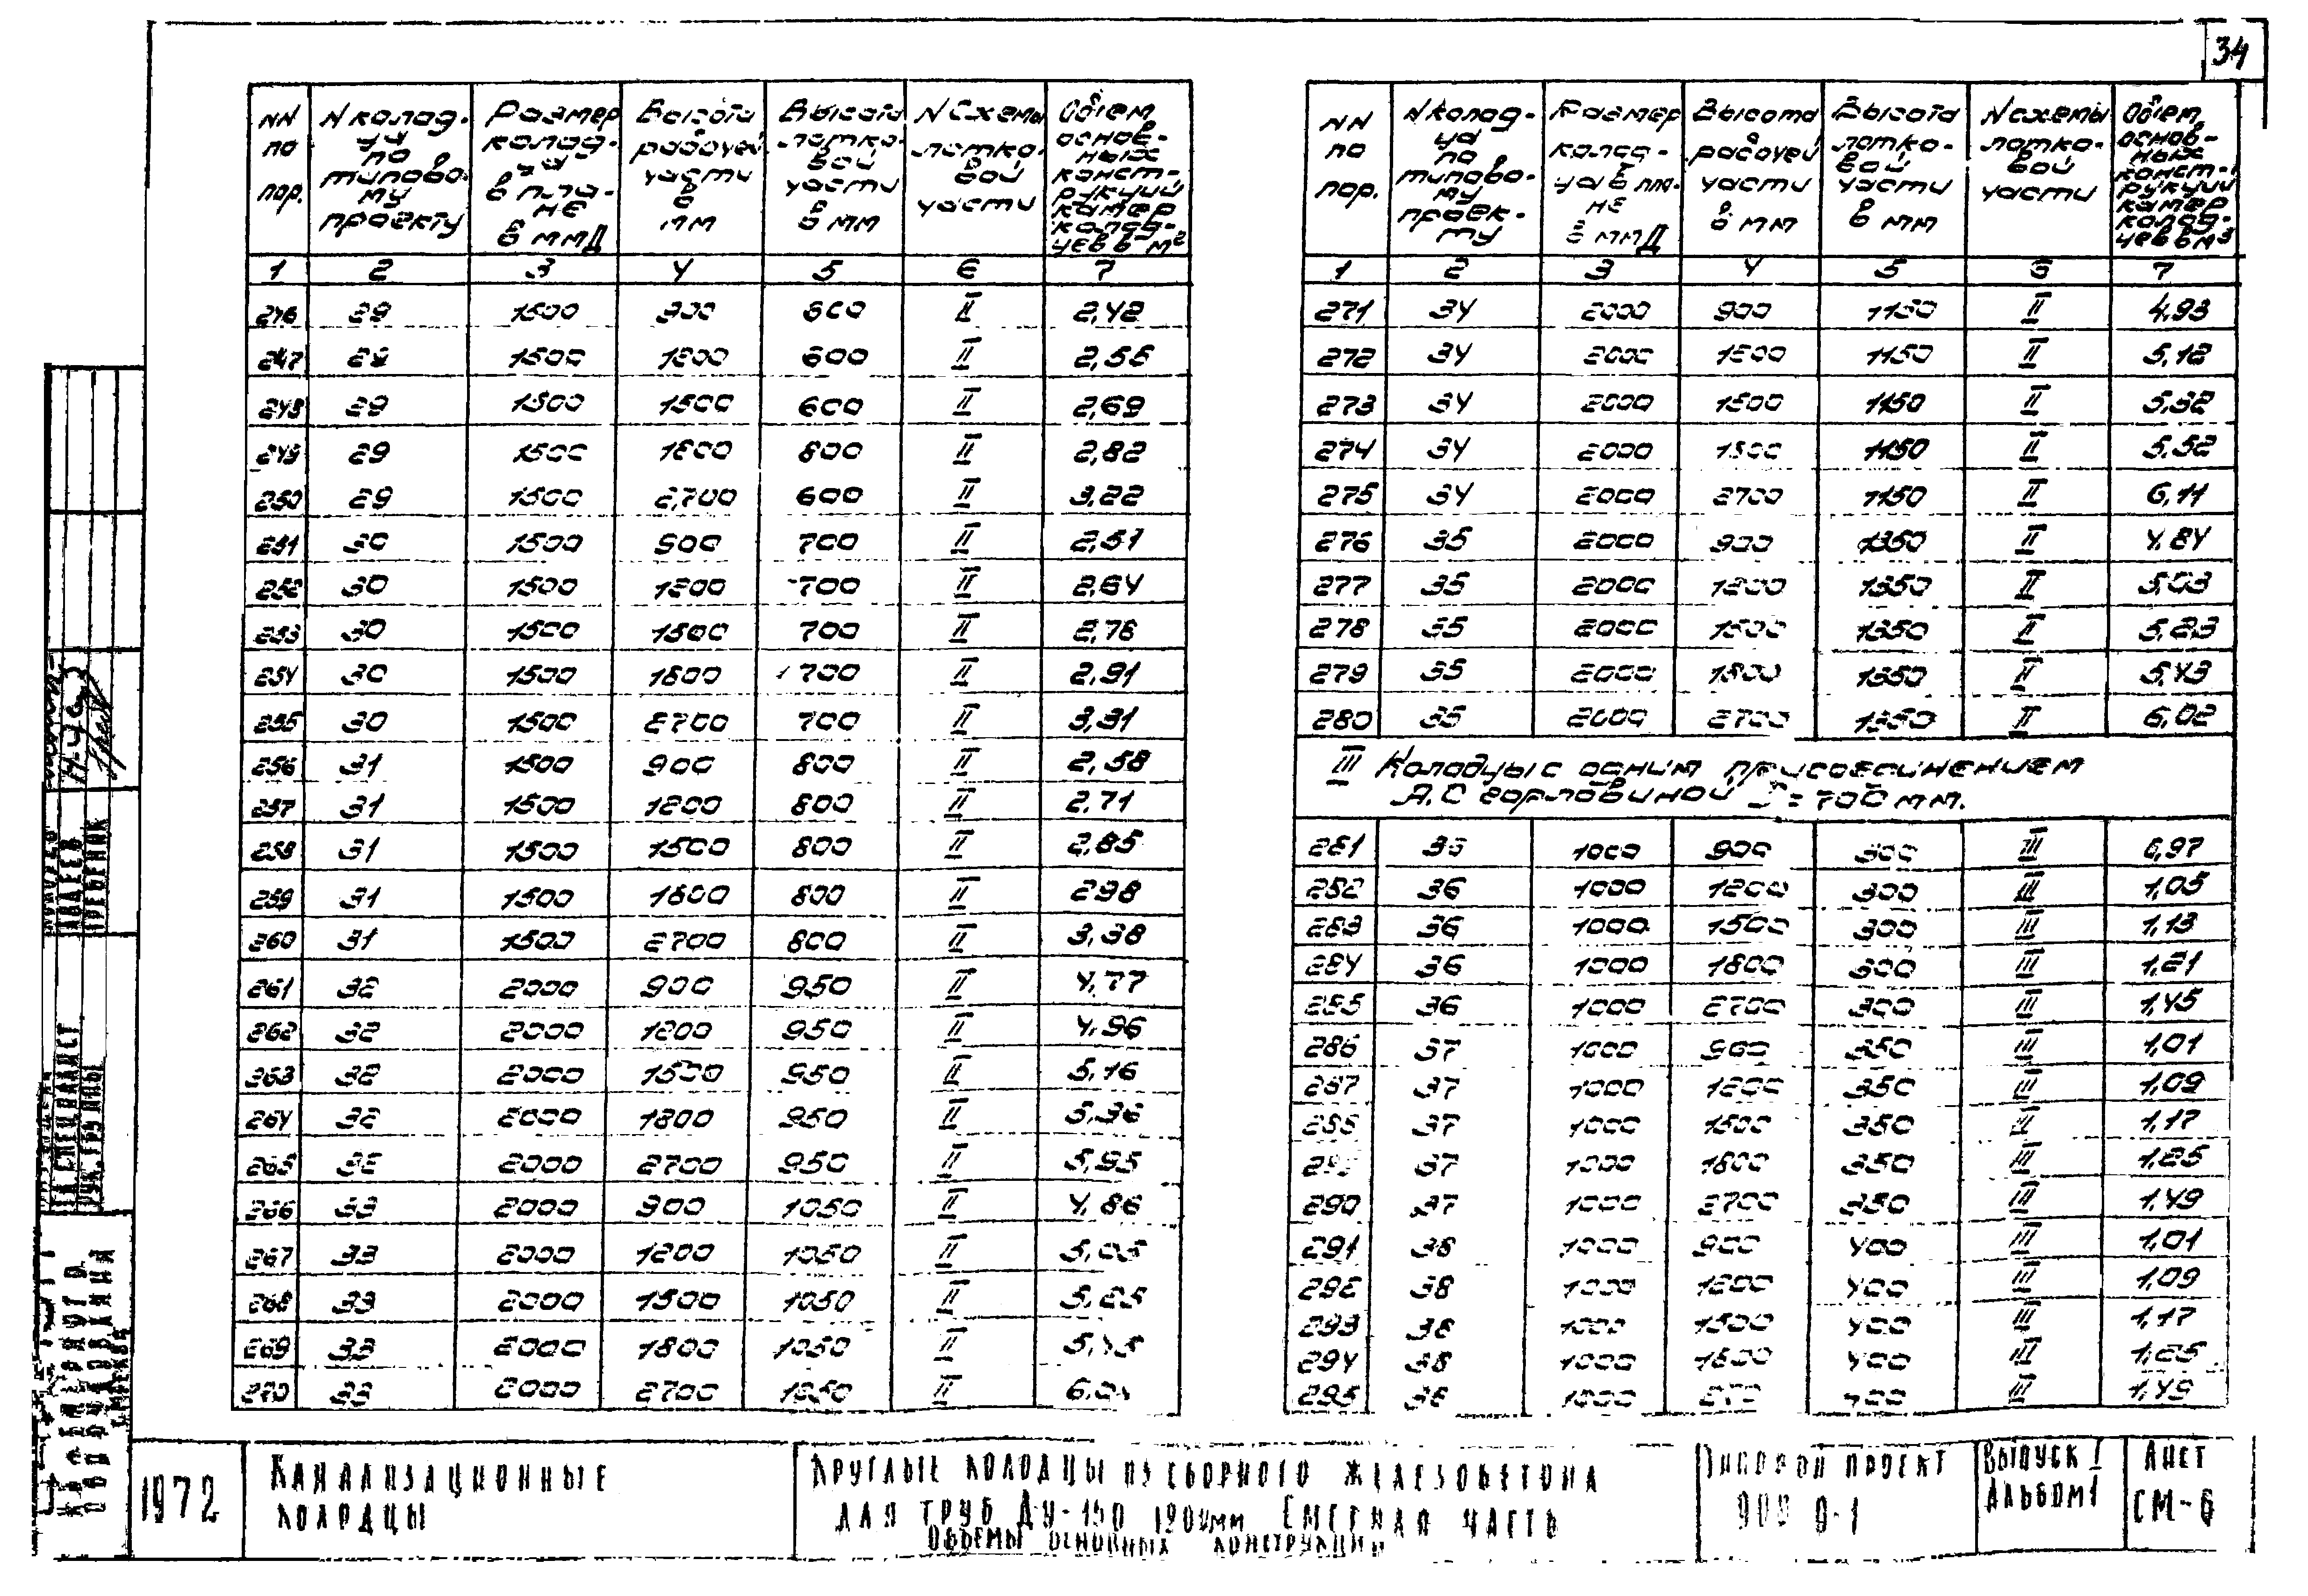 34
NN по пор. | N колод-ца по типово-му проекту | Размер колод-ца в пла-не в мм Д | Высота рабочей части в мм | Высота лотко-вой части в мм | N Схемы лотко-вой части | Объем основ-ных конст-рукций камер колод-цев в м²
1 2 3 4 5 6 7
246 29 1500 900 600 II 2,42
247 29 1500 1200 600 II 2,55
248 29 1500 1500 600 II 2,69
249 29 1500 1800 600 II 2,82
250 29 1500 2700 600 II 3,22
251 30 1500 900 700 II 2,51
252 30 1500 1200 700 II 2,64
253 30 1500 1500 700 II 2,78
254 30 1500 1800 700 II 2,91
255 30 1500 2700 700 II 3,31
256 31 1500 900 800 II 2,58
257 31 1500 1200 800 II 2,71
258 31 1500 1500 800 II 2,85
259 31 1500 1800 800 II 298
260 31 1500 2700 800 II 3,38
261 32 2000 900 950 II 4,77
262 32 2000 1200 950 II 4,96
263 32 2000 1500 950 II 5,16
264 32 2000 1800 950 II 5,36
265 32 2000 2700 950 II 5,95
266 33 2000 900 1050 II 4,86
267 33 2000 1200 1050 II 5,05
268 33 2000 1500 1050 II 5,25
269 33 2000 1800 1050 II
270 33 2000 2700 1050 II
NN по пор. | N колод-ца по типово-му проек-ту | Размер колод-ца в пла-не в мм Д | Высота рабочей части в мм | Высота лотко-вой части в мм | N схемы лотко-вой части | Объем основ-ных конст-рукций камер колод-цев в м³
1 2 3 4 5 6 7
271 34 2000 900 1150 II 4,93
272 34 2000 1200 1150 II 5,12
273 34 2000 1500 1150 II 5,32
274 34 2000 1800 1150 II 5,52
275 34 2000 2700 1150 II 6,11
276 35 2000 900 1350 II 4,84
277 35 2000 1200 1350 II 5,03
278 35 2000 1500 1350 II 5,23
279 35 2000 1800 1350 II 5,43
280 35 2000 2700 1350 II 6,02
III Колодцы с одним присоединением
А. С горловиной Д=700 мм.
281 36 1000 900 300 III 0,97
282 36 1000 1200 300 III 1,05
283 36 1000 1500 300 III 1,13
284 36 1000 1800 300 III 1,21
285 36 1000 2700 300 III 1,45
286 37 1000 900 350 III 1,01
287 37 1000 1200 350 III 1,09
288 37 1000 1500 350 III 1,17
37 1000 1800 350 III 1,25
290 37 1000 2700 350 III 1,49
291 38 1000 900 400 III 1,01
292 38 1000 1200 400 III 1,09
293 38 1000 1500 400 III 1,17
294 38 1000 1800 400 III 1,25
295 38 1000 400 III 1,49
АВДЕЕВ
ГРЕБЕНЮК
ГЛ. СПЕЦИАЛИСТ
РУК. ГРУППЫ
1972
Канализационные
колодцы
Круглые колодцы из сборного железобетона
для труб Ду-150 1200мм Сметная часть
Объемы основных конструкций
Типовой проект
902 9-1
Выпуск I
Альбом 1
Лист
СМ-6